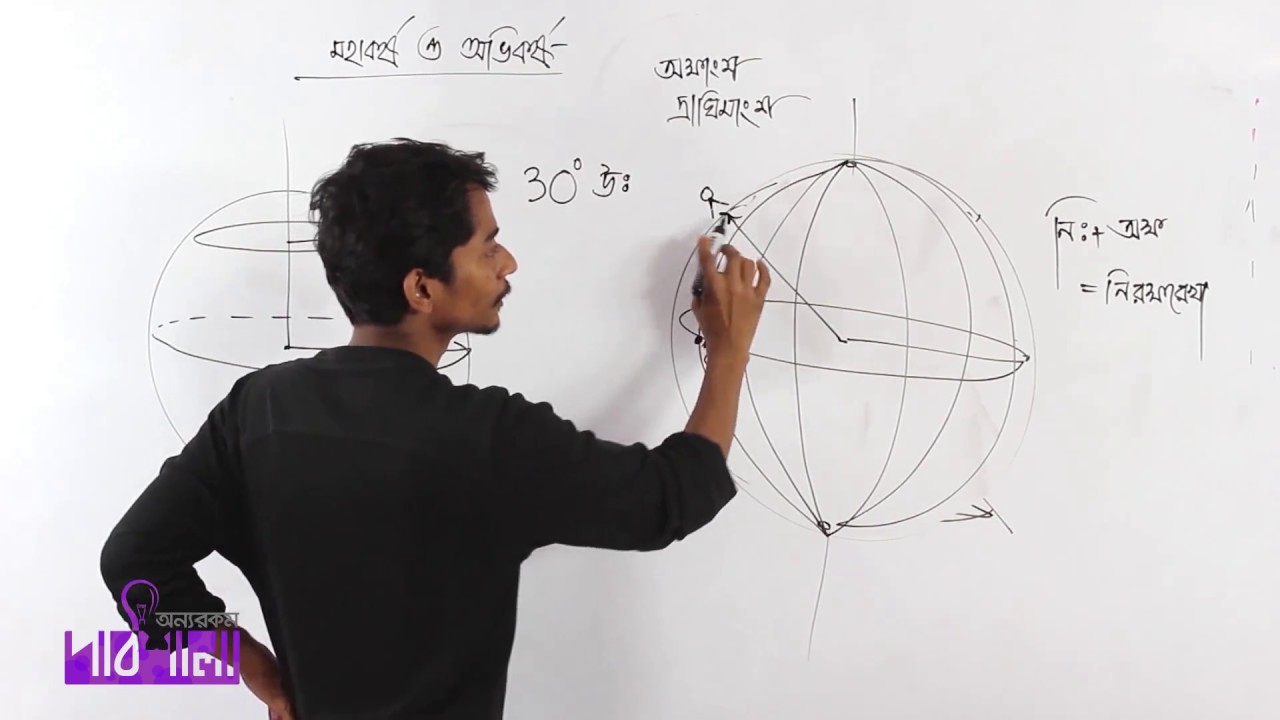 মহাকর্ষ ও অভিকর্ষ
অক্ষাংশ
দ্রাঘিমাংশ
30° উঃ
নিঃ + অক্ষ
= নিরক্ষরেখা
অন্যরকম
পাঠশালা